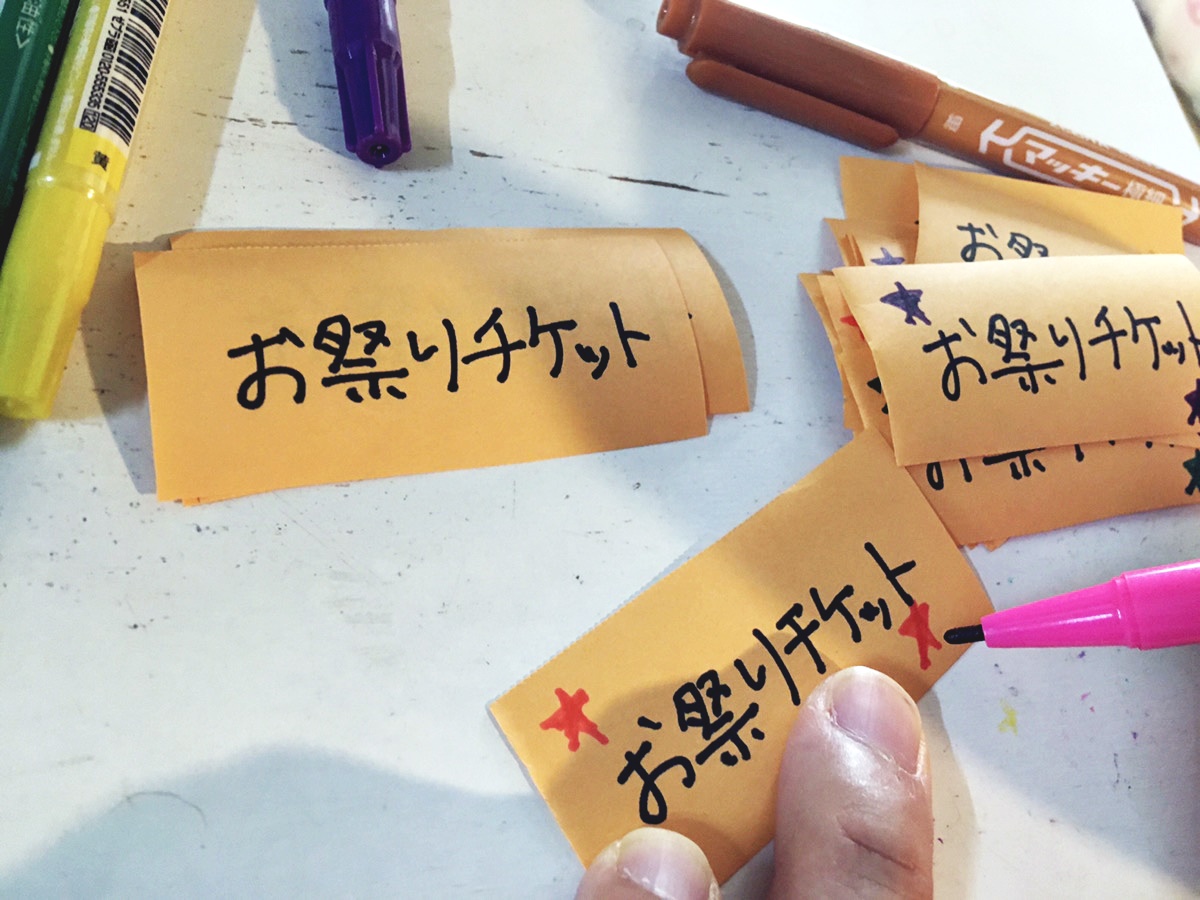 黄
ゼブラ㈱0120-555335
マッキー極細
お祭
お祭りチケット
お祭りチケット
お祭りチケット